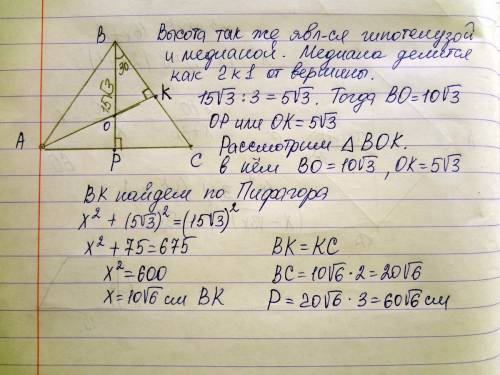 Высота так же явл-ся гипотенузой
и медианой. Медиана делится
как 2 к 1 от вершины.
15√3 : 3 = 5√3. Тогда BO = 10√3
OP или OK = 5√3
Рассмотрим △BOK.
в нём BO = 10√3, OK = 5√3
B
30
15√3
K
O
A
P
C
BK найдем по Пифагора
x² + (5√3)² = (15√3)²
x² + 75 = 675
x² = 600
x = 10√6 см BK
BK = KC
BC = 10√6 · 2 = 20√6
P = 20√6 · 3 = 60√6 см